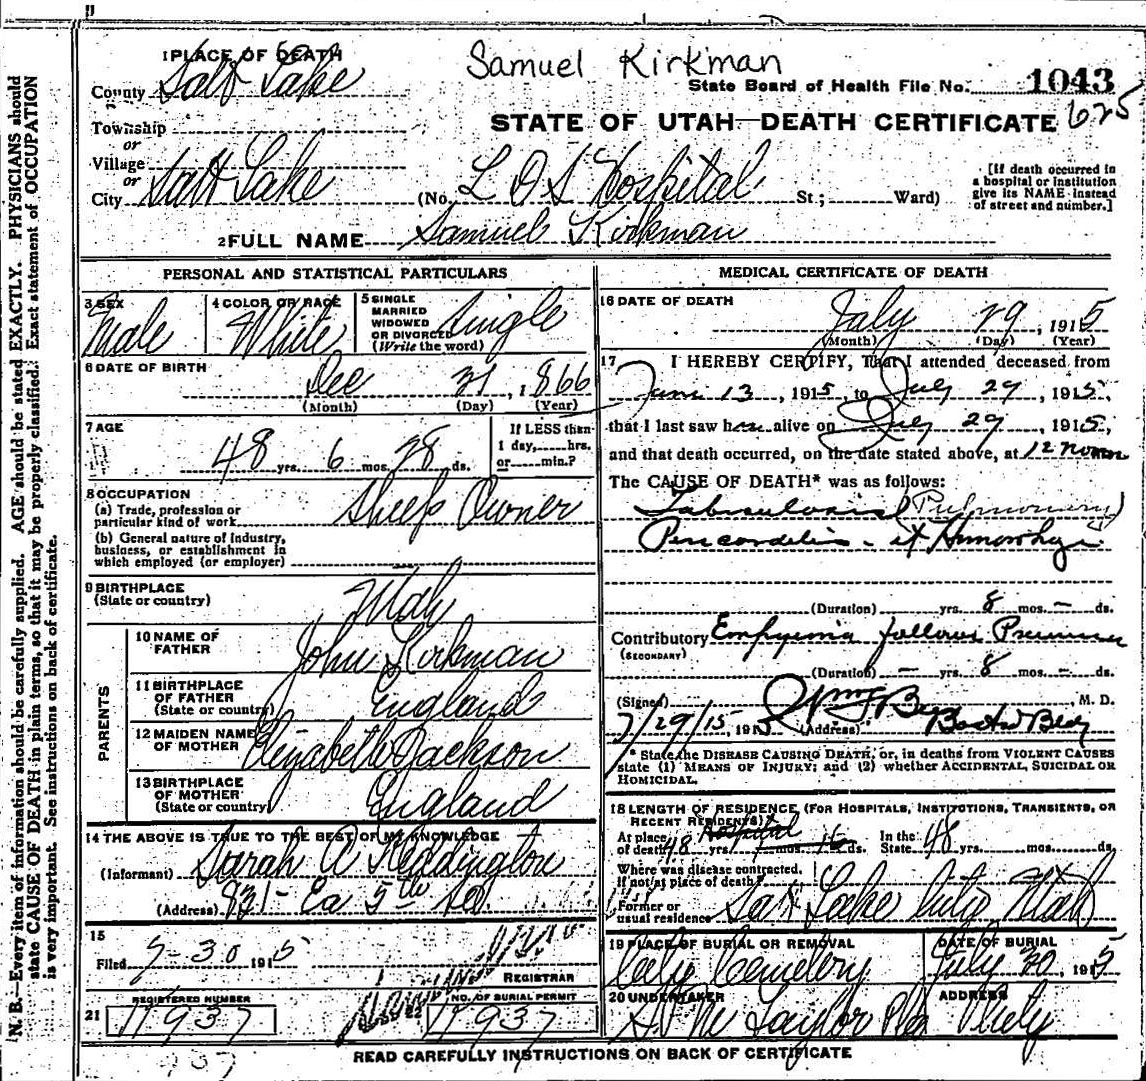 Samuel Kirkman
1 PLACE OF DEATH
County Salt Lake
State Board of Health File No. 1043
625
Township
or
Village
or
City Salt Lake
STATE OF UTAH—DEATH CERTIFICATE
(No. L D S Hospital St; Ward)
[If death occurred in
a hospital or institution
give its NAME instead
of street and number.]
2 FULL NAME Samuel Kirkman
PERSONAL AND STATISTICAL PARTICULARS
3 SEX
Male
4 COLOR OR RACE
White
5 SINGLE
MARRIED
WIDOWED
OR DIVORCED
(Write the word)
Single
6 DATE OF BIRTH
Dec 31, 1866
(Month) (Day) (Year)
7 AGE
48 yrs. 6 mos. 28 ds.
If LESS than
1 day, hrs.
or min.?
8 OCCUPATION
(a) Trade, profession or
particular kind of work
Sheep Owner
(b) General nature of industry,
business, or establishment in
which employed (or employer)
9 BIRTHPLACE
(State or country)
PARENTS
10 NAME OF
FATHER
John Kirkman
11 BIRTHPLACE
OF FATHER
(State or country)
England
12 MAIDEN NAME
OF MOTHER
Elizabeth Jackson
13 BIRTHPLACE
OF MOTHER
(State or country)
England
14 THE ABOVE IS TRUE TO THE BEST OF MY KNOWLEDGE
(Informant) Sarah A Reddington
(Address) 931- Ea 5th So.
15
Filed 7-30 1915
REGISTRAR
REGISTERED NUMBER
21 11937
NO. OF BURIAL PERMIT
22 11937
MEDICAL CERTIFICATE OF DEATH
16 DATE OF DEATH
July 29, 1915
(Month) (Day) (Year)
17 I HEREBY CERTIFY, That I attended deceased from
June 13, 1915, to July 29, 1915,
that I last saw him alive on July 29, 1915,
and that death occurred, on the date stated above, at 12 noon
The CAUSE OF DEATH* was as follows:
Tuberculosis (Pulmonary)
(Duration) yrs. 8 mos. – ds.
Contributory Empyema follows
(SECONDARY)
(Duration) – yrs. 8 mos. – ds.
(Signed) M. D.
7/29/15, 191 (Address)
* State the DISEASE CAUSING DEATH, or, in deaths from VIOLENT CAUSES
state (1) MEANS OF INJURY; and (2) whether ACCIDENTAL, SUICIDAL OR
HOMICIDAL.
18 LENGTH OF RESIDENCE (FOR HOSPITALS, INSTITUTIONS, TRANSIENTS, OR
RECENT RESIDENTS)
Hospital
At place
of death 48 yrs. mos. 16 ds.
In the
State 48 yrs. mos. ds.
Where was disease contracted,
if not at place of death?
Former or
usual residence Salt Lake City Utah
19 PLACE OF BURIAL OR REMOVAL
City Cemetery
DATE OF BURIAL
July 30, 1915
20 UNDERTAKER
Taylor
ADDRESS
City
READ CAREFULLY INSTRUCTIONS ON BACK OF CERTIFICATE
937
N. B.—Every item of information should be carefully supplied. AGE should be stated EXACTLY. PHYSICIANS should
state CAUSE OF DEATH in plain terms, so that it may be properly classified. Exact statement of OCCUPATION
is very important. See instructions on back of certificate.